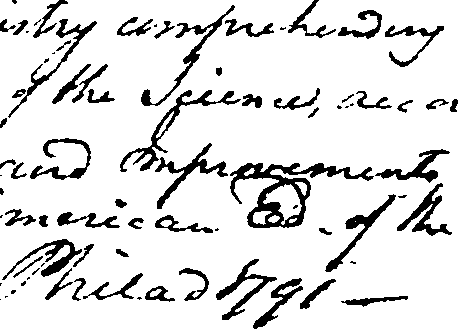 istry comprehending
of the Science, acco
and Improvements
merican Ed. of the
Philad 1791 —